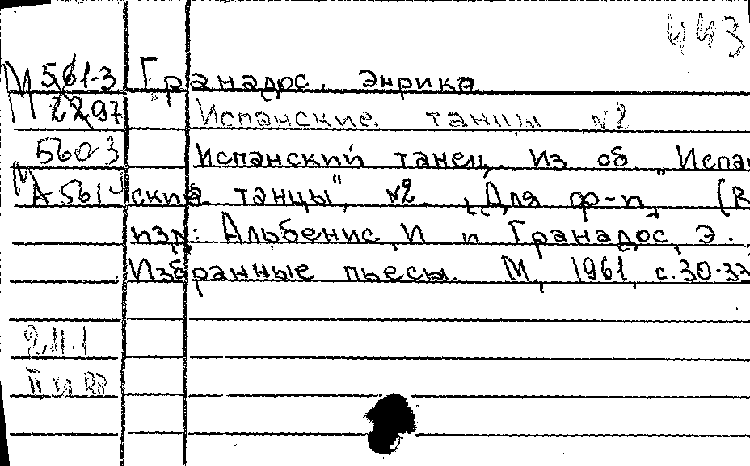 443
М 561-3 Гранадос, Энрике
2297 Испанские танцы №2
560-3 Испанский танец из сб. „Испан
МА 561-4 ские танцы", №2. Для ф-п. (В
изд: Альбенис, И и Гранадос, Э.
Избранные пьесы. М, 1961, с.30-33
2.11.1